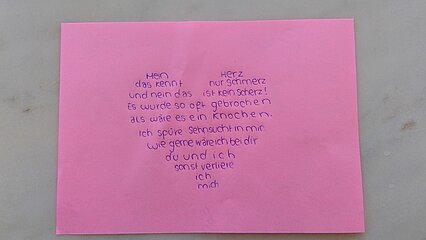 Mein Herz
das kennt nur schmerz
und nein das ist kein scherz!
Es wurde so oft gebrochen
als wäre es ein Knochen.
Ich spüre Sehnsucht in mir
wie gerne wäre ich bei dir
du und ich
sonst verliere
ich
mich